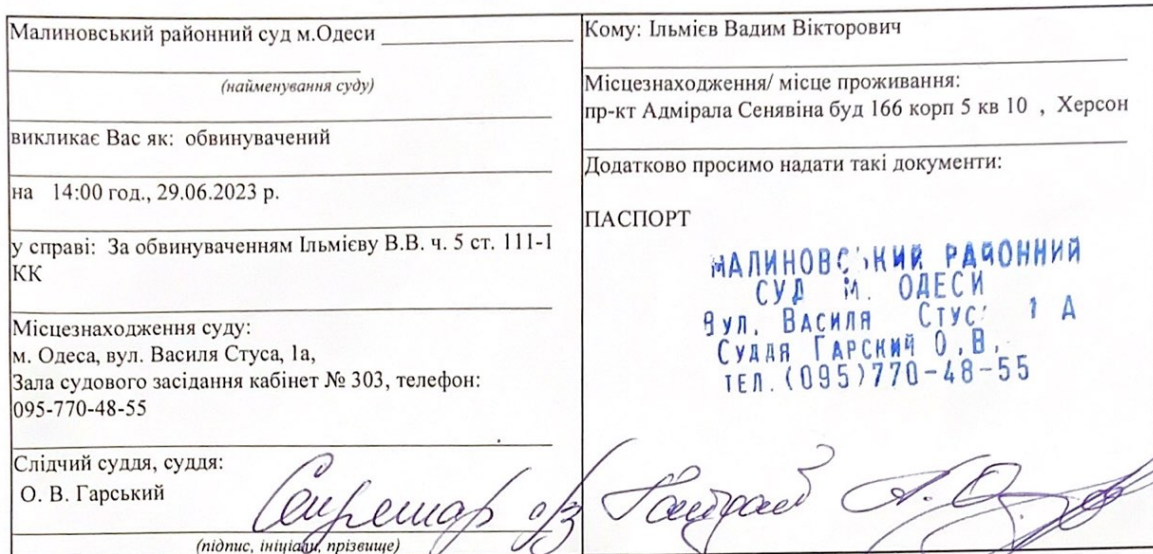 Малиновський районний суд м.Одеси
(найменування суду)
викликає Вас як: обвинувачений
на 14:00 год., 29.06.2023 р.
у справі: За обвинуваченням Ільмієву В.В. ч. 5 ст. 111-1
КК
Місцезнаходження суду:
м. Одеса, вул. Василя Стуса, 1а,
Зала судового засідання кабінет № 303, телефон:
095-770-48-55
Слідчий суддя, суддя:
О. В. Гарський
Секретар с/з
(підпис, ініціали, прізвище)
Кому: Ільмієв Вадим Вікторович
Місцезнаходження/ місце проживання:
пр-кт Адмірала Сенявіна буд 166 корп 5 кв 10 , Херсон
Додатково просимо надати такі документи:
ПАСПОРТ
МАЛИНОВСЬКИЙ РАЙОННИЙ
СУД М. ОДЕСИ
вул. Василя Стуса 1 А
Суддя Гарский О.В.
тел. (095)770-48-55